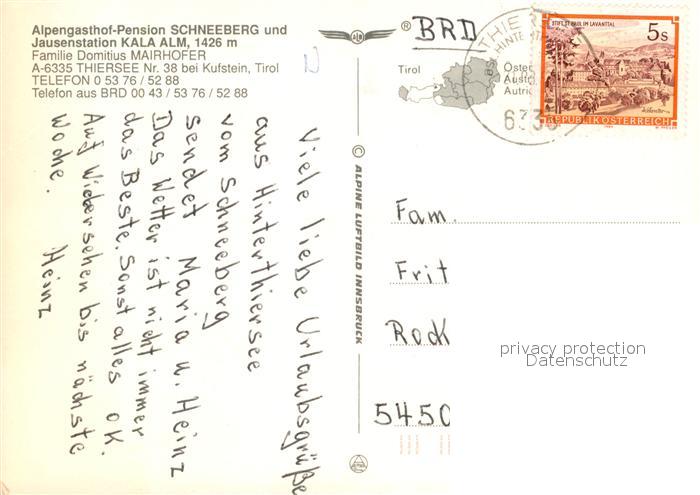 Alpengasthof-Pension SCHNEEBERG und
Jausenstation KALA ALM, 1426 m
Familie Domitius MAIRHOFER
A-6335 THIERSEE Nr. 38 bei Kufstein, Tirol
TELEFON 0 53 76 / 52 88
Telefon aus BRD 00 43 / 53 76 / 52 88
Viele liebe Urlaubsgrüße
aus Hinterthiersee
vom Schneeberg
sendet Maria u. Heinz
Das Wetter ist nicht immer
das Beste. Sonst alles OK.
Auf Wiedersehen bis nächste
Woche.
Heinz
© ALPINE LUFTBILD INNSBRUCK
®
BRD
Tirol
Öster
Autric
THIER
HINTERTH
6335
STIFT ST. PAUL IM LAVANTTAL
5 S
REPUBLIK ÖSTERREICH
Fam.
Frit
Rock
5450
privacy protection
Datenschutz